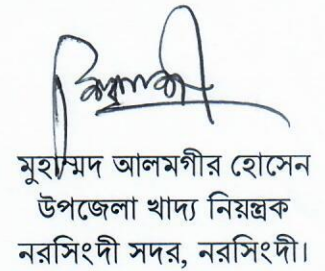 মুহাম্মদ আলমগীর হোসেন
উপজেলা খাদ্য নিয়ন্ত্রক
নরসিংদী সদর, নরসিংদী।